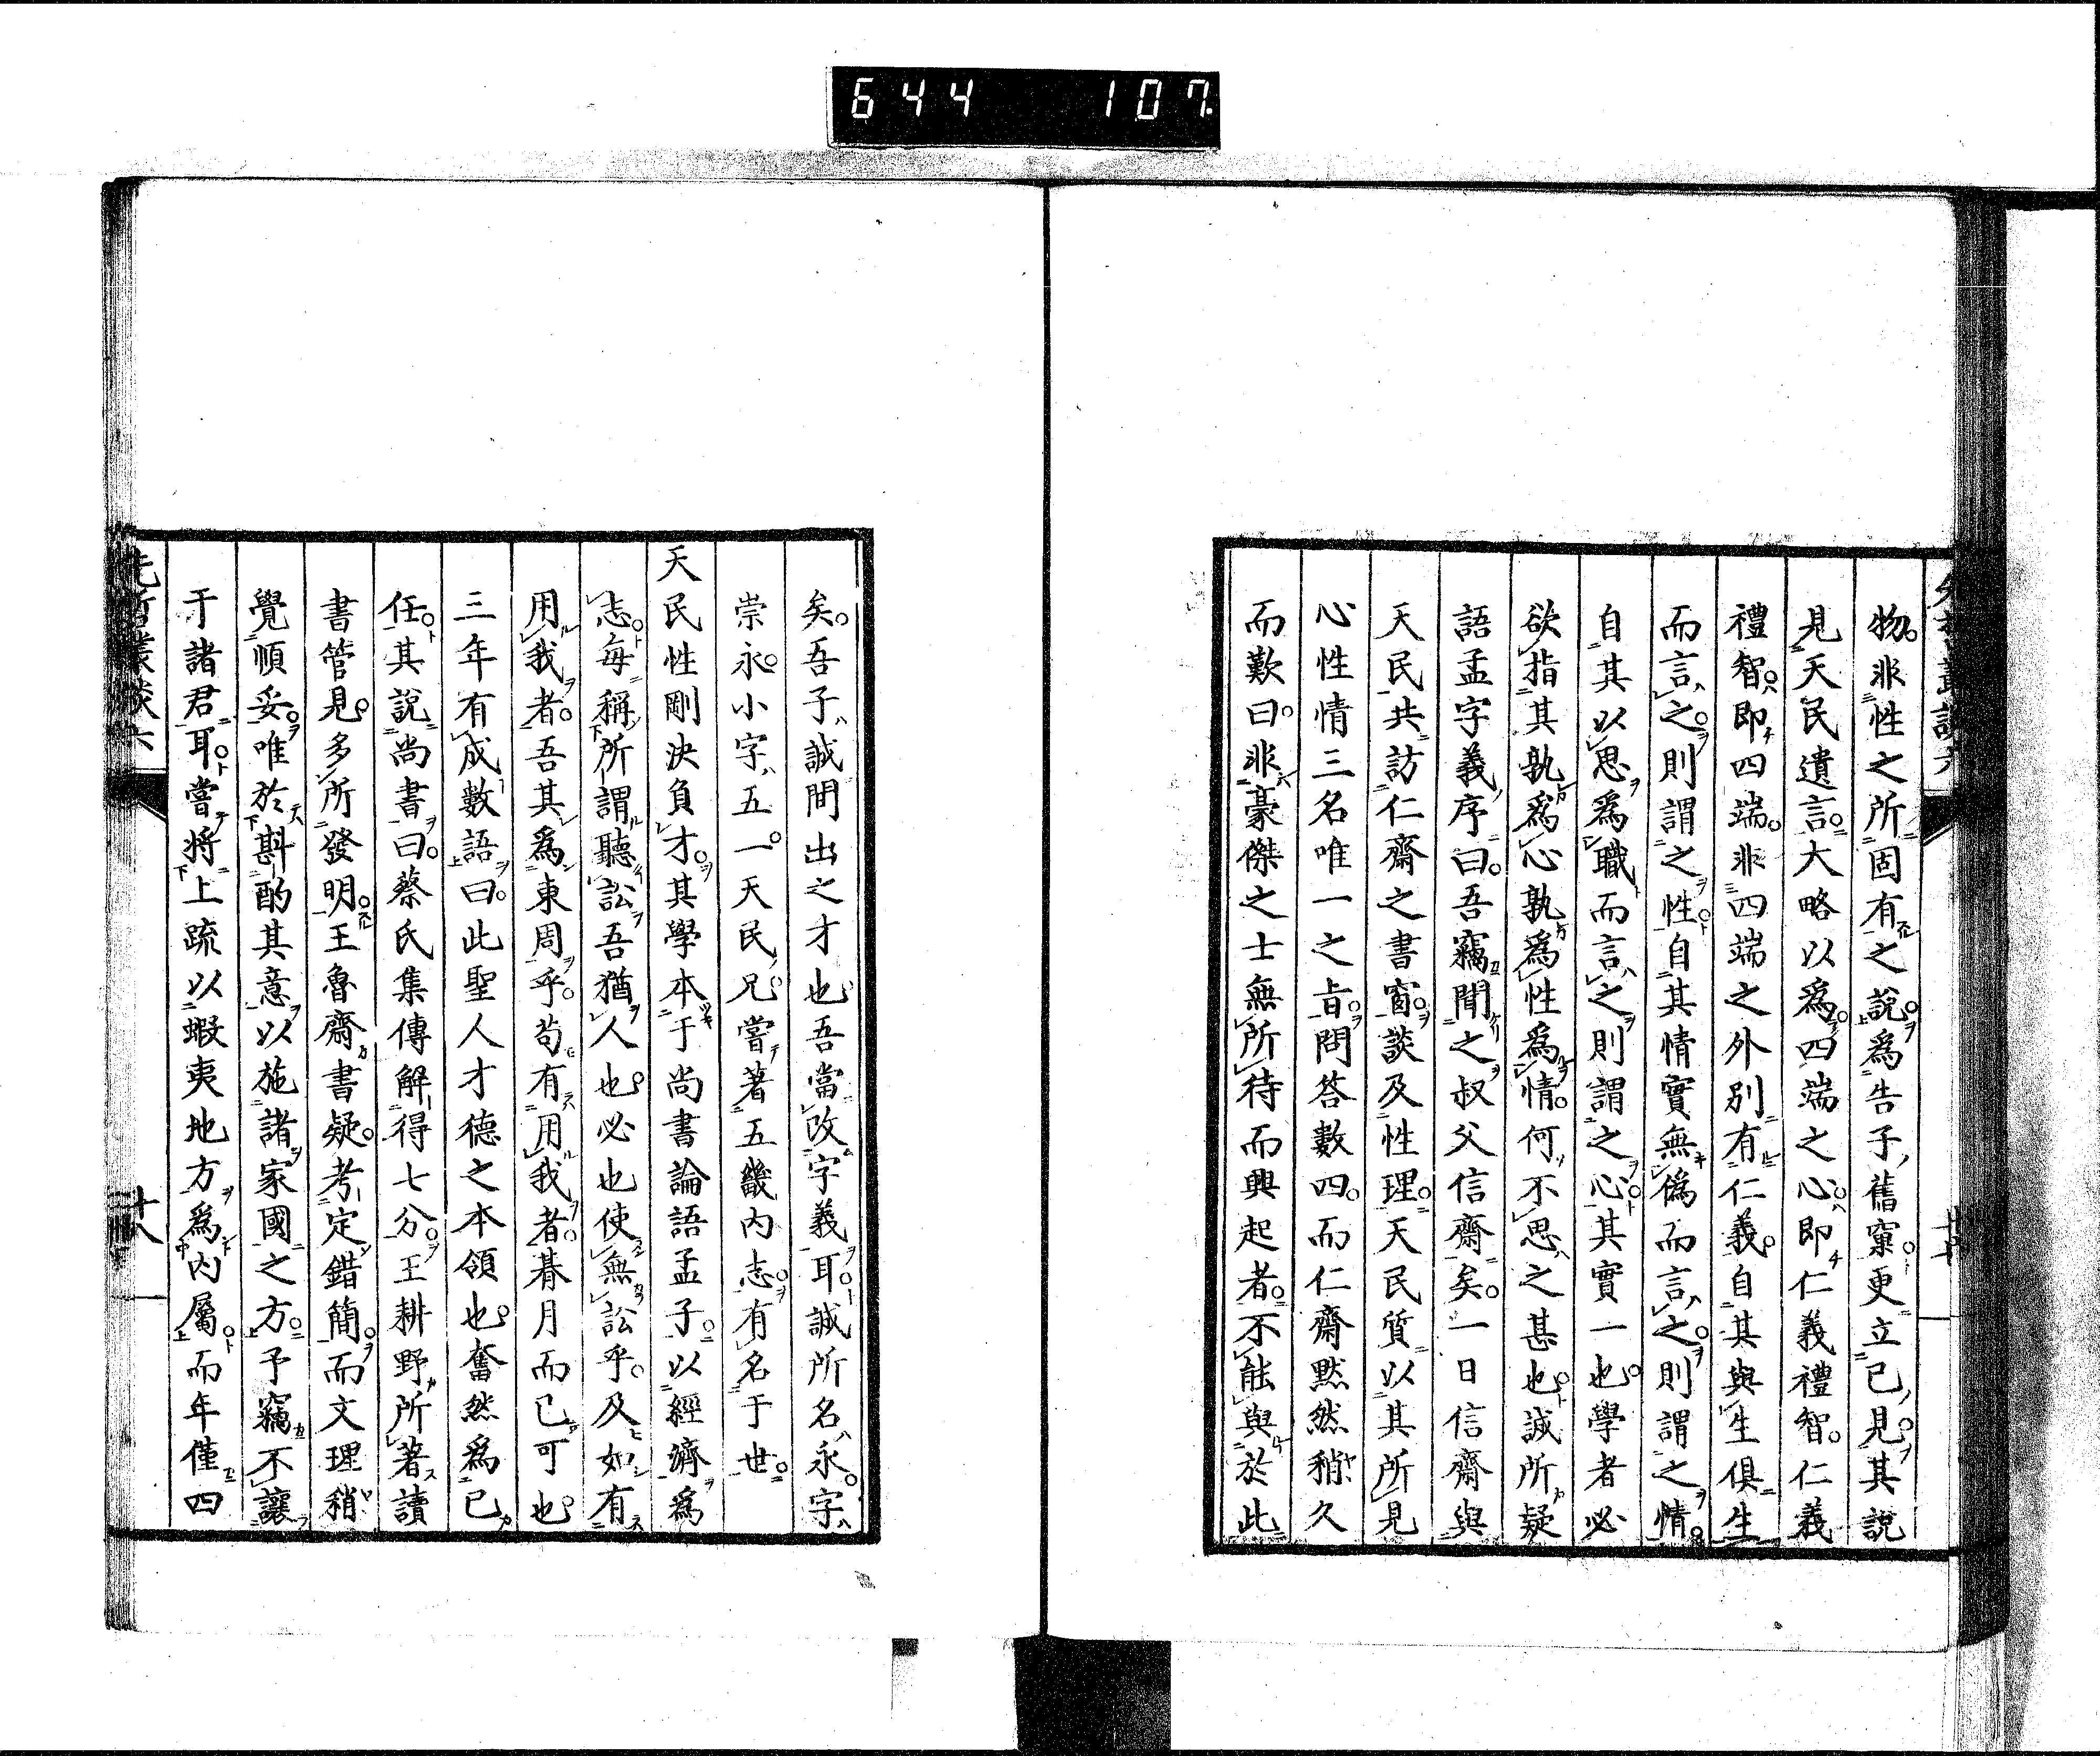 644 107
物。非性之所固有之説。爲告子舊窠。更立己見。其説
見天民遺言。大略以爲。四端之心。即仁義禮智。仁義
禮智。即四端。非四端之外別有仁義。自其與生俱生
而言之。則謂之性。自其情實無僞而言之。則謂之情。
自其以思爲職而言之則謂之心。其實一也。學者必
欲指其孰爲心孰爲性爲情。何不思之甚也。誠所疑
語孟字義序曰。吾竊聞之叔父信齋矣。一日信齋與
天民共訪仁齋之書窗。談及性理。天民質以其所見
心性情三名唯一之旨。問答數四。而仁齋默然稍久
而歎曰。非豪傑之士無所待而興起者。不能與於此
矣。吾子誠間出之才也。吾當改字義耳。誠所名永。字
崇永。小字五一。天民兄。嘗著五畿内志。有名于世。
天民性剛決負才。其學本于尚書論語孟子。以經濟爲
志。毎稱所謂聽訟吾猶人也。必也使無訟乎。及如有
用我者。吾其爲東周乎。苟有用我者。朞月而已可也
三年有成數語曰。此聖人才德之本領也。奮然爲己
任。其説尚書曰。蔡氏集傳解得七分。王耕野所著讀
書管見。多所發明。王魯齋書疑。考定錯簡。而文理稍
覺順妥。唯於斟酌其意以施諸家國之方。予竊不讓
于諸君耳。嘗將上疏以蝦夷地方爲内屬。而年僅四
先哲叢談六
十八